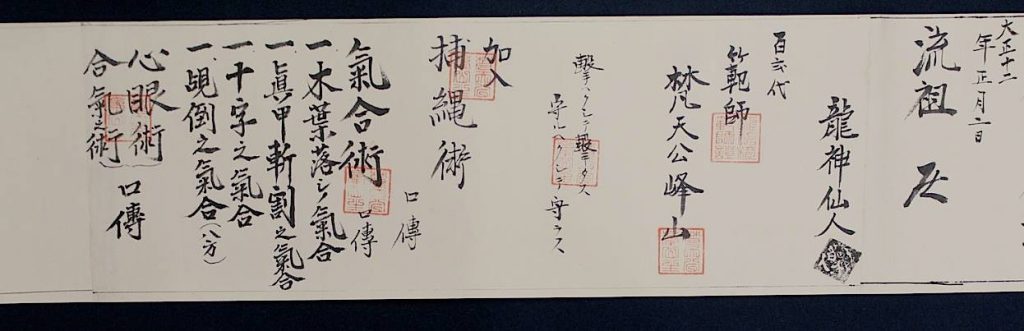 大正十二
年正月
流祖
龍神仙人
百六代
範師
梵天公峰山
撃ツヘクシテ撃タス
守ルヘクシテ守ラス
加入
捕縄術 口傳
氣合術 口傳
一木葉落シノ氣合
一眞甲斬割之氣合
一十字之氣合
一覘倒之氣合(八方)
心眼術
合氣之術 口傳